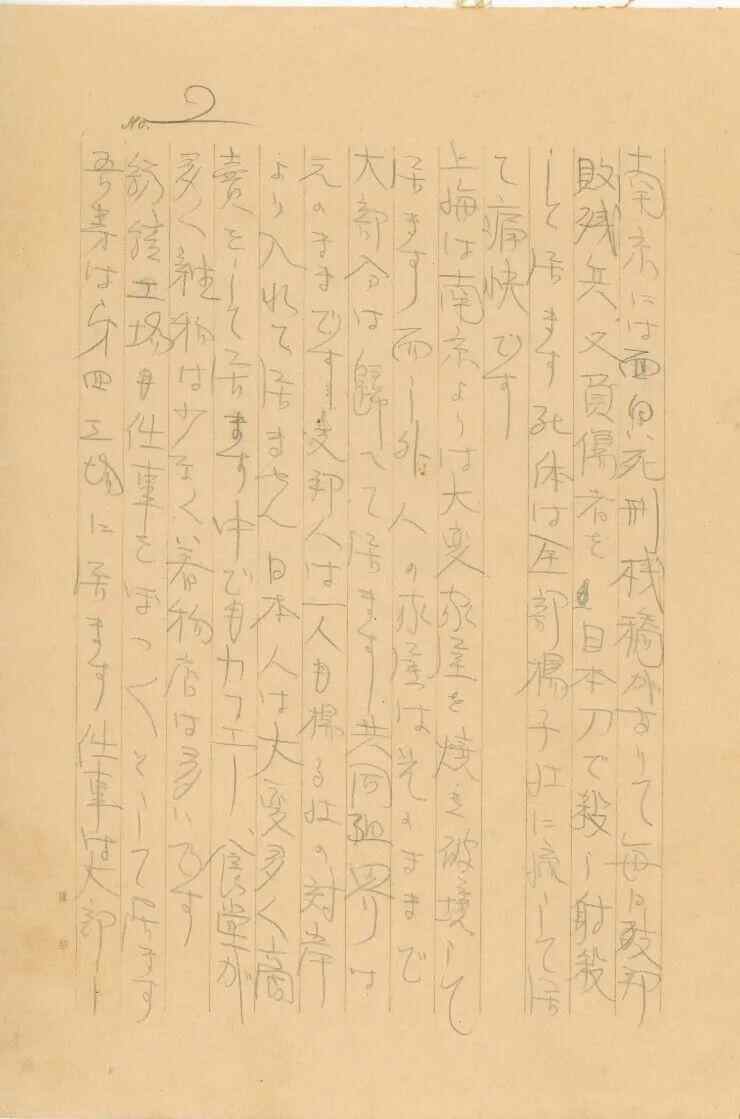 No. 2
南京には面白い死刑桟橋がありて毎日支那
敗残兵、又負傷者を日本刀で殺し射殺
して居ます 死体は全部揚子江に流して居
て痛快です
上海は南京よりは大変家屋を焼き破壊して
居ます 而し外人の家屋は其のままで
大部分は帰へて居ます 共同租界りは
元のままです 支那人は一人も揚子江の対岸
より入れて居ません 日本人は大変多く商
賣をして居ます 中でもカフエー、食堂が
多く雑物は少なく着物店は多いです
紡績工場も仕事をぼつ〱として居ます
吾等は第四工場に居ます 仕事は大部